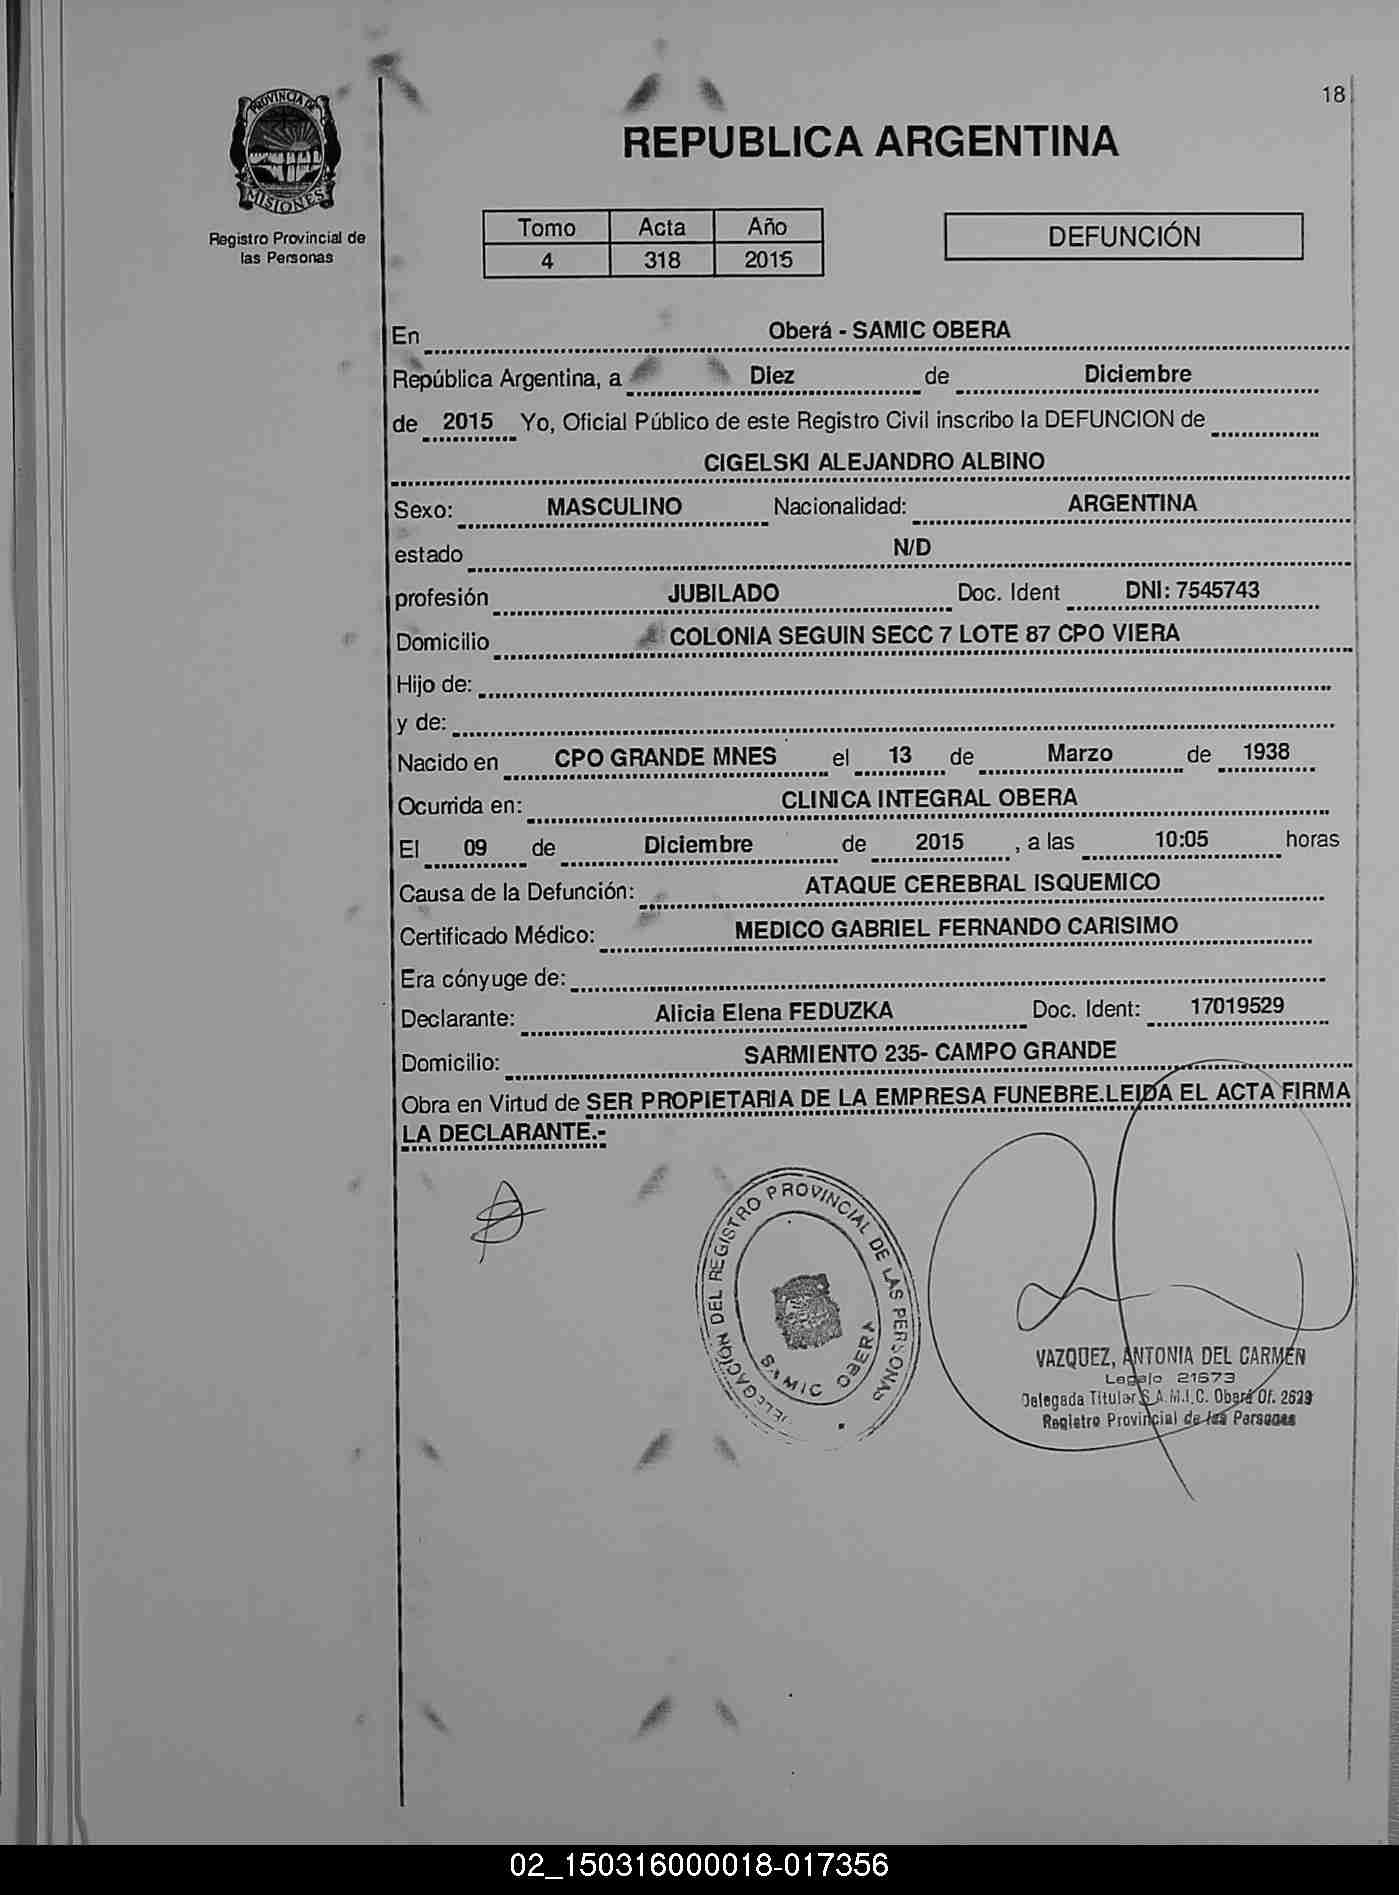 18
PROVINCIA DE
MISIONES
Registro Provincial de
las Personas
REPUBLICA ARGENTINA
Tomo Acta Año
4 318 2015
DEFUNCIÓN
En Oberá - SAMIC OBERA
República Argentina, a Diez de Diciembre
de 2015 Yo, Oficial Público de este Registro Civil inscribo la DEFUNCION de
CIGELSKI ALEJANDRO ALBINO
Sexo: MASCULINO Nacionalidad: ARGENTINA
estado N/D
profesión JUBILADO Doc. Ident DNI: 7545743
Domicilio COLONIA SEGUIN SECC 7 LOTE 87 CPO VIERA
Hijo de:
y de:
Nacido en CPO GRANDE MNES el 13 de Marzo de 1938
Ocurrida en: CLINICA INTEGRAL OBERA
El 09 de Diciembre de 2015 , a las 10:05 horas
Causa de la Defunción: ATAQUE CEREBRAL ISQUEMICO
Certificado Médico: MEDICO GABRIEL FERNANDO CARISIMO
Era cónyuge de:
Declarante: Alicia Elena FEDUZKA Doc. Ident: 17019529
Domicilio: SARMIENTO 235- CAMPO GRANDE
Obra en Virtud de SER PROPIETARIA DE LA EMPRESA FUNEBRE.LEIDA EL ACTA FIRMA
LA DECLARANTE.-
DELEGACION DEL REGISTRO PROVINCIAL DE LAS PERSONAS
SAMIC OBERA
VAZQUEZ, ANTONIA DEL CARMEN
Legajo 21573
Delegada Titular S.A.M.I.C. Oberá Of. 2629
Registro Provincial de las Personas
02_150316000018-017356